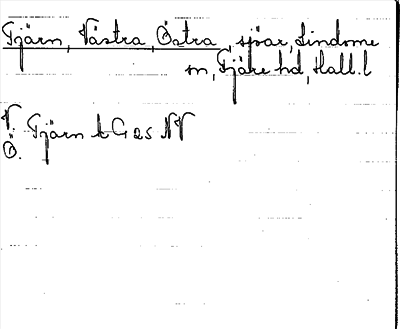 Tjärn, Västra, Östra, sjöar, Lindome
sn, Fjäre hd, Hall. l
V.
Ö. Tjärn t G 25 NV